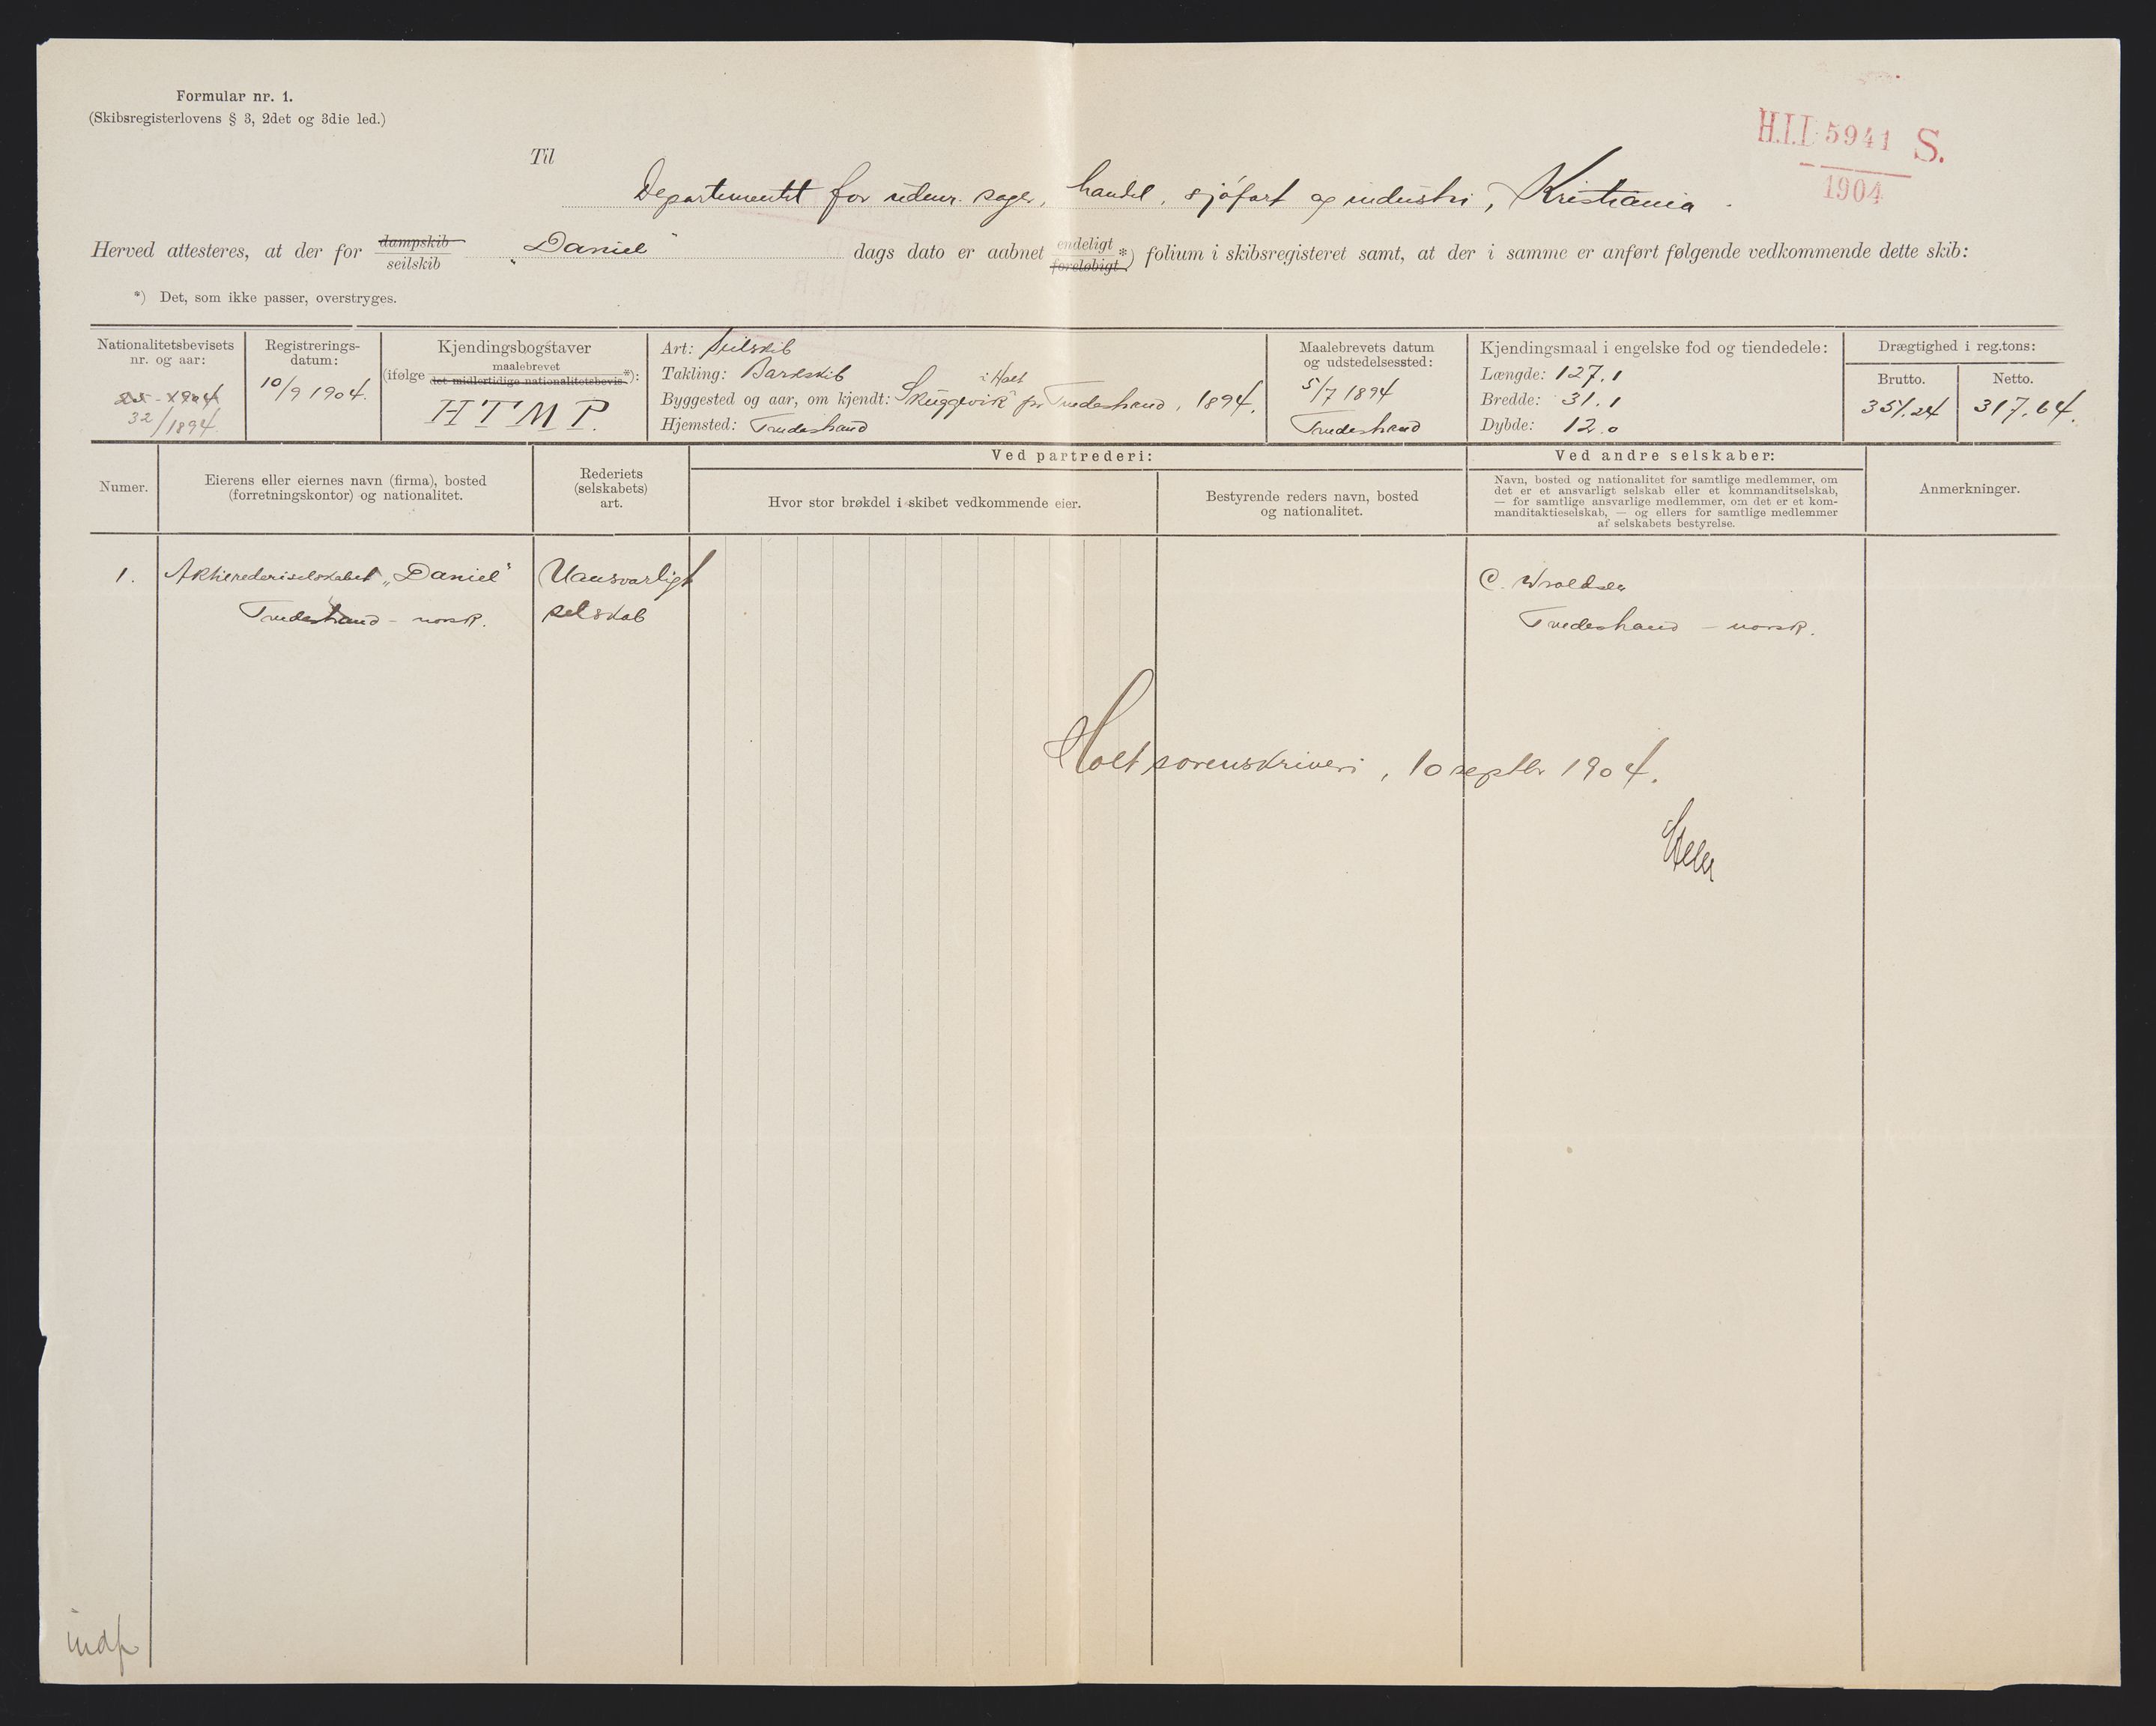 Formular nr. 1.
(Skibsregisterlovens § 3, 2det og 3die led.)
H.I.I. 5941 S.
1904
Til
Departementet for udenr. sager, handel, sjøfart og industri, Kristiania.
Herved attesteres, at der for dampskib seilskib „Daniel“ dags dato er aabnet endeligt foreløbigt *) folium i skibsregisteret samt, at der i samme er anført følgende vedkommende dette skib:
*) Det, som ikke passer, overstryges.
Nationalitetsbevisets nr. og aar:
32/1894.
Registrerings-datum:
10/9 1904.
Kjendingsbogstaver
(ifølge maalebrevet det midlertidige nationalitetsbevis *):
H T M P.
Art: Seilskib
Takling: Barkskib
Byggested og aar, om kjendt: Skuggevik i Holt pr. Tvedestrand, 1894.
Hjemsted: Tvedestrand
Maalebrevets datum og udstedelsessted:
5/7 1894
Tvedestrand
Kjendingsmaal i engelske fod og tiendedele:
Længde: 127.1
Bredde: 31.1
Dybde: 12.0
Drægtighed i reg.tons:
Brutto. Netto.
351.24 317.64.
Numer.
Eierens eller eiernes navn (firma), bosted
(forretningskontor) og nationalitet.
Rederiets
(selskabets)
art.
Ved partrederi:
Hvor stor brøkdel i skibet vedkommende eier.
Bestyrende reders navn, bosted
og nationalitet.
Ved andre selskaber:
Navn, bosted og nationalitet for samtlige medlemmer, om
det er et ansvarligt selskab eller et kommanditselskab,
— for samtlige ansvarlige medlemmer, om det er et kom-
manditaktieselskab, — og ellers for samtlige medlemmer
af selskabets bestyrelse.
Anmerkninger.
1. Aktierederiselskabet „Daniel“ Uansvarligt C. Wroldsen
Tvedestrand – norsk. selskab Tvedestrand – norsk.
Holt sorenskriveri, 10 septbr 1904.
indf